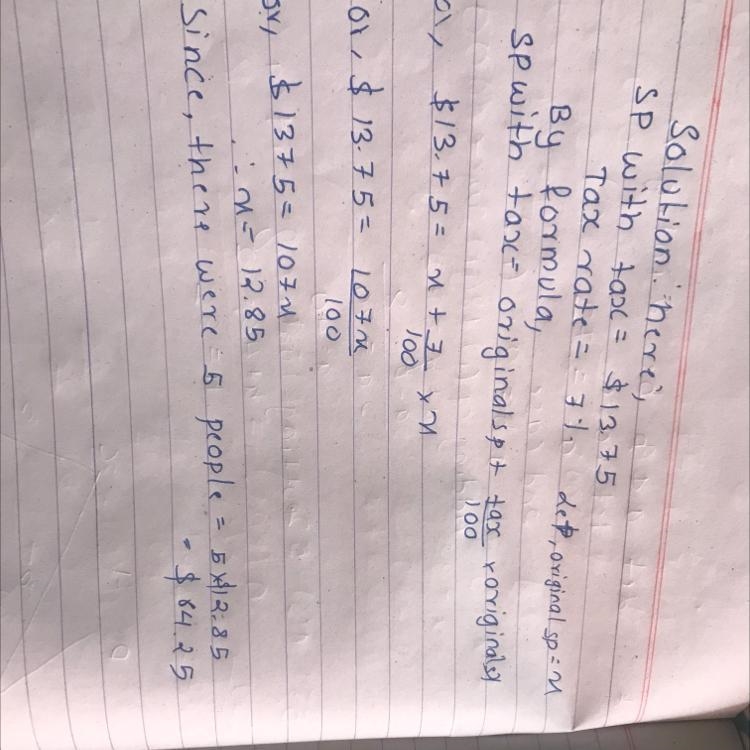 Solution: here,
SP with tax = $13.75
Tax rate = 7%. let, original sp = x
By formula,
SP with tax = original sp + tax/100 × original sp
or, $13.75 = x + 7/100 × x
or, $13.75 = 107x/100
or, $1375 = 107x
∴ x = 12.85
Since, there were 5 people = 5×$12.85
= $64.25